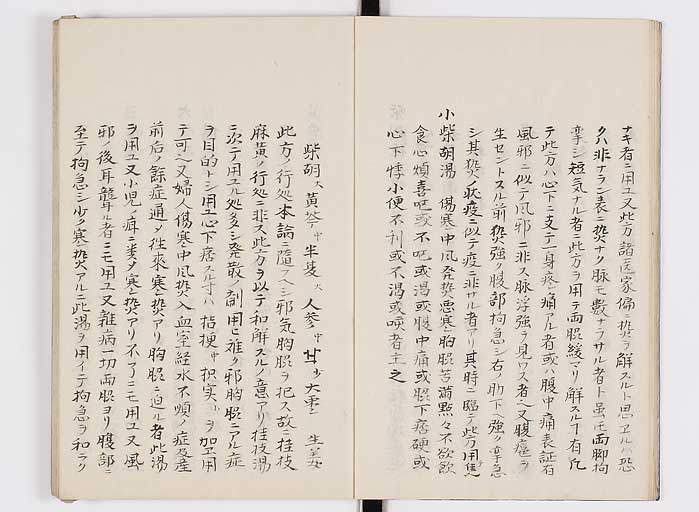 ナキ者ニ用ユ又此方諸医家偏ニ熱ヲ解スルト思ヱルハ恐
クハ非ナラン表ニ熱ナク脉モ数ナラサル者ト虽モ両脚拘
挛シ短気ナル者ニ此方ヲ用テ両服緩マリ解スルヿ有凡
テ此方ハ心下ニ支テ一身疼痛アル者或ハ腹中痛表証有
風邪ニ似テ風邪ニ非ス脉浮強ヲ見ワス者又腹瘧ヲ
生セントスル前熱強ク腹部拘急シ右ノ肋下ヘ強ク挛急
シ其熱状疫ニ似テ疫ニ非サル者アリ其時ニ臨テ此方用
小柴胡湯 傷寒中風発熱悪寒胸脇苦満黙々不欲飲
食心煩喜吐或不吐或渴或腹中痛或脇下痞硬或
心下悸小便不利或不渴或咳者主之
柴胡大黄芩中半夏大人参中甘少大枣 生姜
此方ノ行処本論ニ隨ヘシ邪気胸脇ヲ犯ス故ニ桂枝
麻黄ノ行処ニ非ス此方ヲ以テ和解スルノ意アリ桂枝湯
ニ次テ用ユル処多シ発散ノ剤用ヒ難ク邪胸脇ニアル症
ヲ目的トシ用ユ心下痞スル寸ハ桔梗中枳実ヲ加ヱ用
テ可又婦人傷寒中風熱入血室経水不順ノ症及産
前后ノ餘症通メ往來寒熱アリ胸脇ニ迫ル者此湯
ヲ用ユ又小児ノ癖ニ寒熱アリ不アリニモ用ユ又風
邪ノ後耳聾ル者ニモ用ユ又雜病一切両脇ヨリ腹部ニ
至テ拘急シ少ク寒熱アルニ此湯ヲ用イテ拘急ヲ和ラク